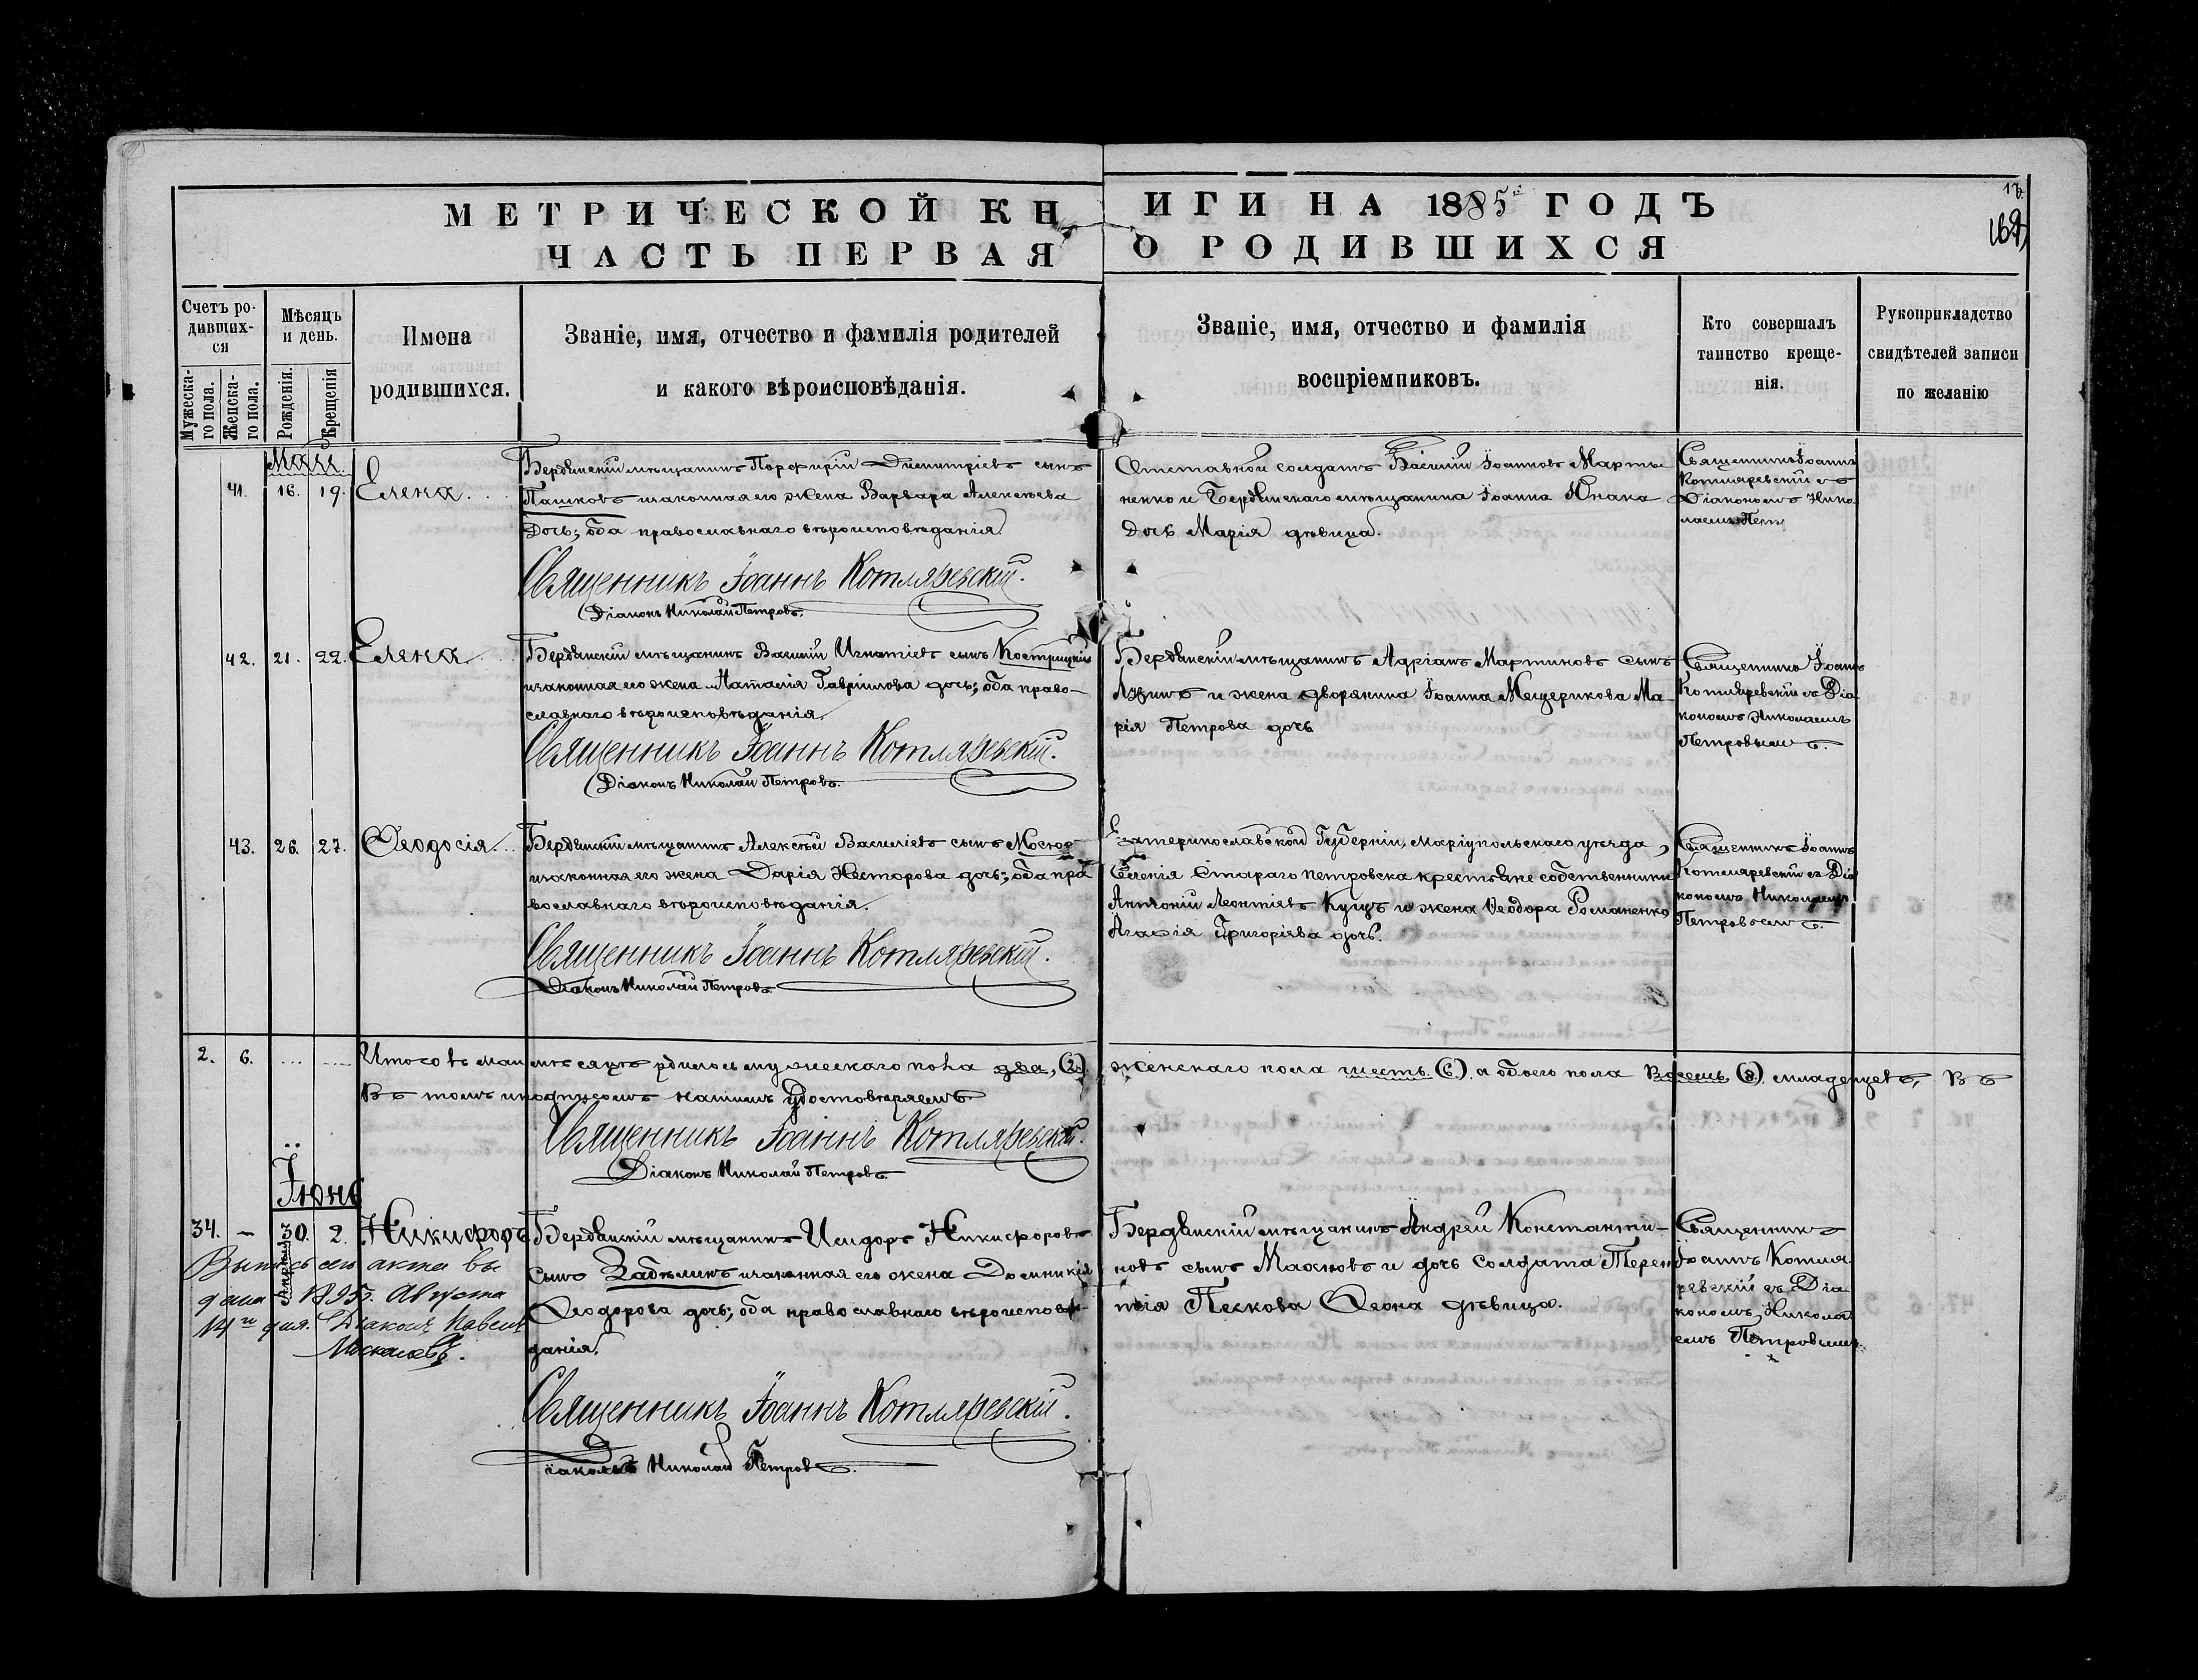 МЕТРИЧЕСКОЙ КНИГИ НА 1885й ГОДЪ
ЧАСТЬ ПЕРВАЯ О РОДИВШИХСЯ
Счетъ родившихся
Мужескаго пола.
Женскаго пола.
Мѣсяцъ и день.
Рожденія.
Крещенія
Имена
родившихся.
Званіе, имя, отчество и фамилія родителей
и какого вѣроисповѣданія.
Званіе, имя, отчество и фамилія
воспріемниковъ.
Кто совершалъ
таинство креще-
нія.
Рукоприкладство
свидѣтелей записи
по желанію
41. 16. 19. Елена.
Бердянскій мѣщанинъ Порфирій Димитріевъ сынъ
Пашковъ и законная его жена Варвара Алексѣева
дочь; оба православнаго вѣроисповѣданія.
Священникъ Іоаннъ Котляревскій.
Діаконъ Николай Петровъ.
Отставной солдатъ Василій Іоанновъ Марты-
ненко и Бердянскаго мѣщанина Іоанна Юнака
дочь Марія дѣвица.
Священникъ Іоаннъ
Котляревскій съ
Діакономъ Нико
лаемъ Пет
42. 21. 22. Елена.
Бердянскій мѣщанинъ Василій Игнатіевъ сынъ Кострицкій
и законная его жена Наталія Гавріилова дочь; оба право-
славнаго вѣроисповѣданія.
Священникъ Іоаннъ Котляревскій.
Діаконъ Николай Петровъ.
Бердянскій мѣщанинъ Адріанъ Мартиновъ сынъ
и жена дворянина Іоанна Мещерикова Ма-
рія Петрова дочь
Священникъ Іоаннъ
Котляревскій съ Діа
кономъ Николаемъ
Петровымъ.
43. 26. 27. Ѳеодосія.
Бердянскій мѣщанинъ Алексѣй Василіевъ сынъ
и законная его жена Дарія Несторова дочь; оба пра
вославнаго вѣроисповѣданія.
Священникъ Іоаннъ Котляревскій.
Діаконъ Николай Петровъ.
Екатеринославской Губерніи, Маріупольскаго уѣзда,
Селенія Стараго петровска крестьяне собственники
Антоній Леонтіевъ Куцъ и жена Ѳеодора Романенко
Агафія Григоріева дочь.
Священникъ Іоаннъ
Котляревскій съ Діа
кономъ Николаемъ
Петровымъ.
2. 6. Итого въ маи мѣсяцѣ родилось мужескаго пола два, (2) женскаго пола шесть (6) а обоего пола восемь (8) младенцевъ, Въ
Въ томъ и подписомъ нашимъ удостовѣряемъ
Священникъ Іоаннъ Котляревскій.
Діаконъ Николай Петровъ.
Іюнь
34. – 30. 2. Никифоръ
Апрѣля
Выпись сего акта вы
дана 1895г. Августа
14го дня. Діаконъ Павелъ
Москалевъ.
Бердянскій мѣщанинъ Исидоръ Никифоровъ
сынъ Забѣлинъ и законная его жена Домникія
Ѳеодорова дочь; оба православнаго вѣроисповѣ-
данія.
Священникъ Іоаннъ Котляревскій.
Діаконъ Николай Петровъ.
Бердянскій мѣщанинъ Андрей Константи-
новъ сынъ Махновъ и дочь солдата Терен
тія Пескова Ѳеона дѣвица.
Священникъ
Іоаннъ Котля
ревскій съ Діа
кономъ Никола
емъ Петровымъ.